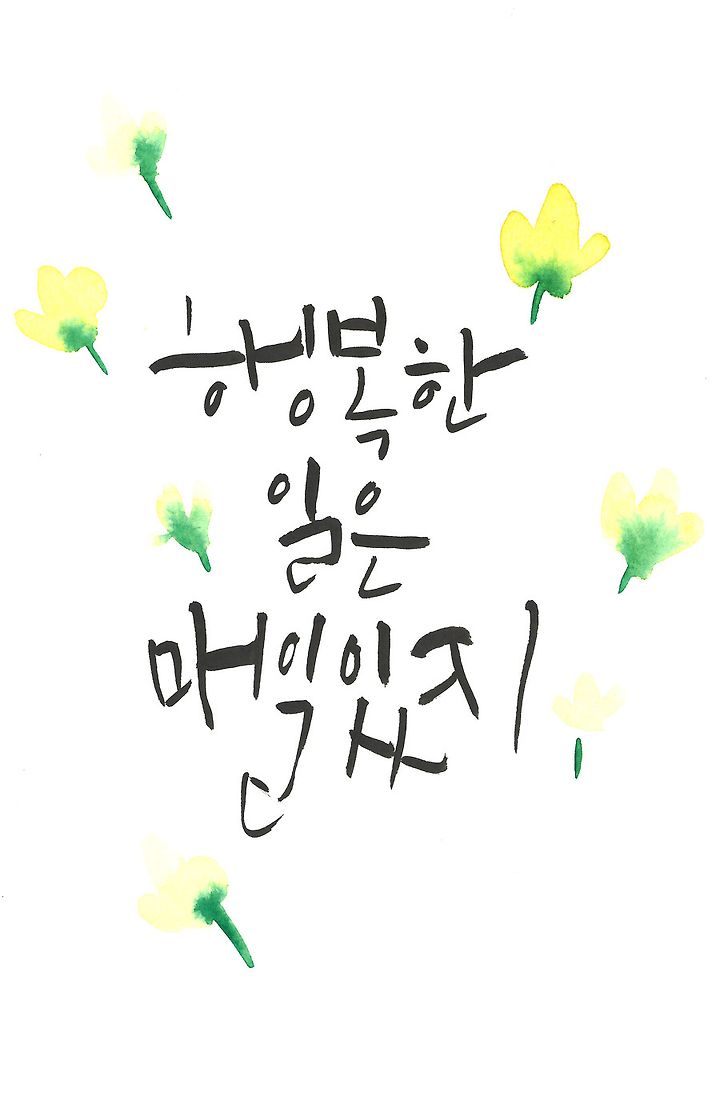 행복한
일은
매일있지